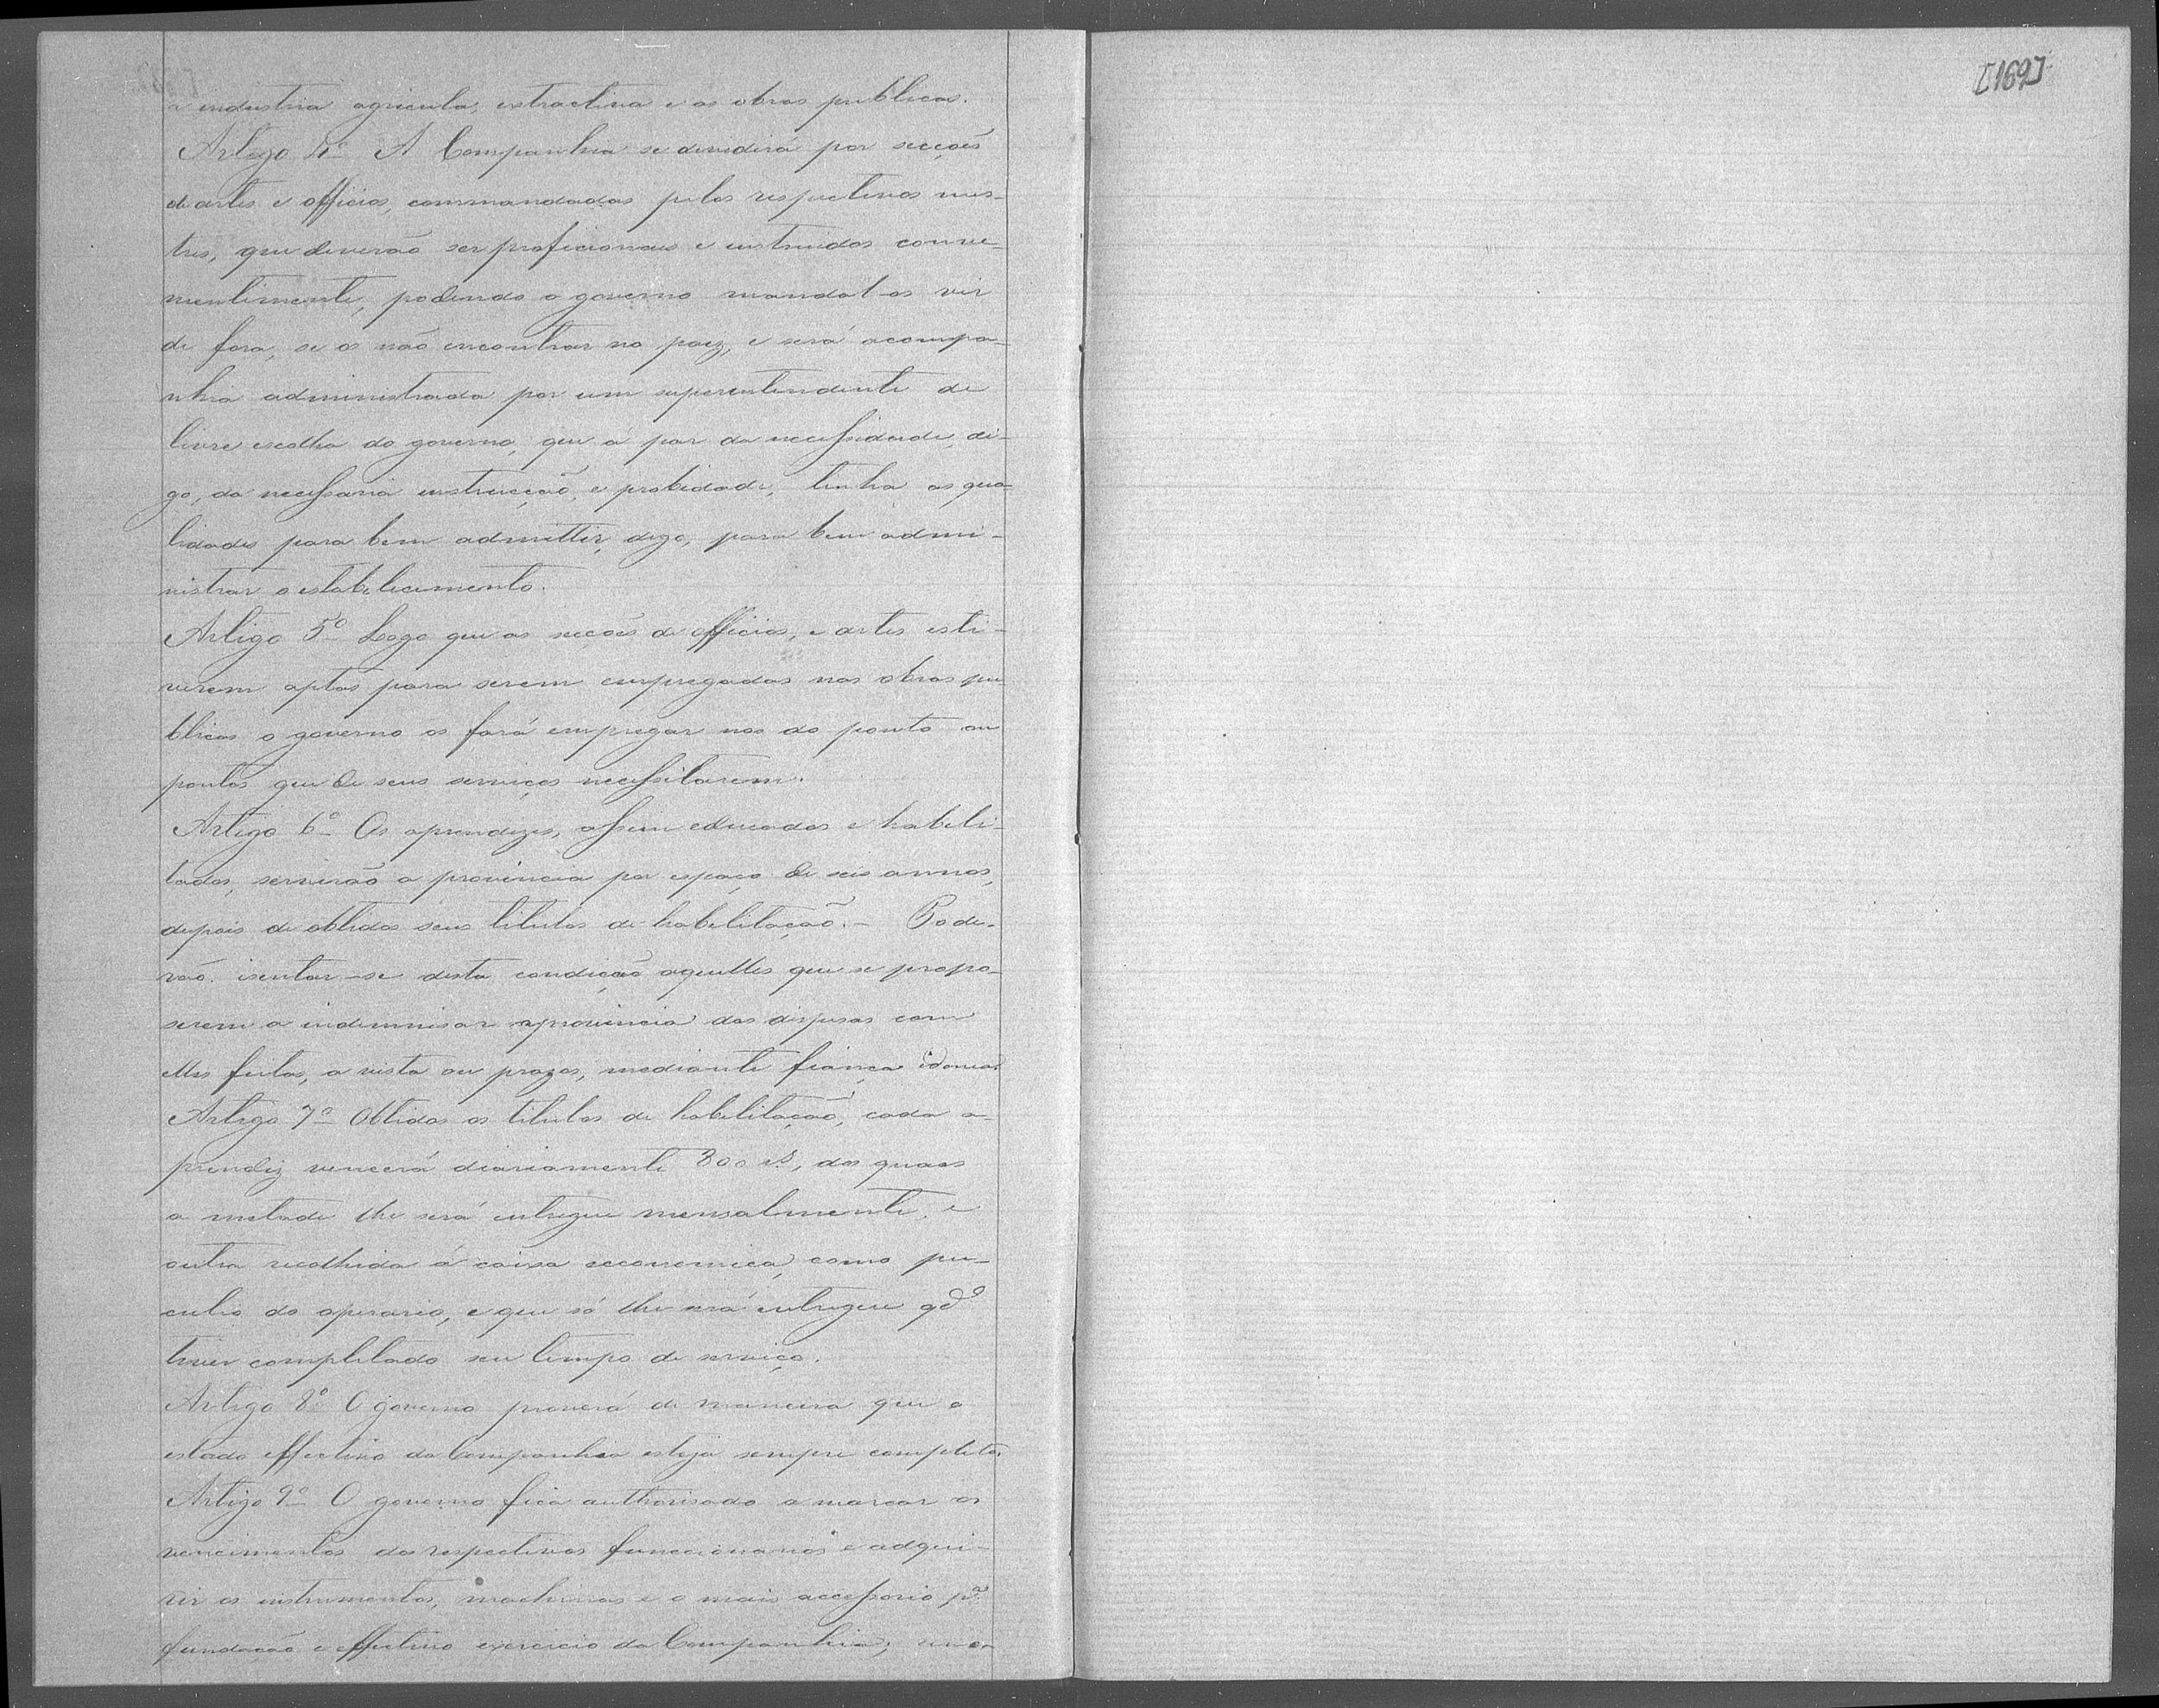 a industria agricula, extractiva e as obras publicas.
Artigo 4º A Companhia se dividirá por secções
de artes e officios, commandadas pelos respectivos mes-
tres, que deverão ser proficionaes e instruidos conve-
nientimente, podendo o governo mandal-os vir
de fora, se os não encontrar no paiz, e será acompa-
nhia administrada por um superintendente de
livre escolha do governo, que á par da necessidade, di-
go, da necessaria instrucção, e probidade, tenha as qua-
lidades para bem admittir, digo, para bem admi-
nistrar o estabelecimento.
Artigo 5º Logo que as secções de officios, e artes esti-
verem aptas para serem empregadas nas obras pu-
blicas o governo os fará empregar nas do ponto ou
pontos que de seus serviços necessitarem.
Artigo 6º Os aprendizes, assim educados e habeli-
tados, servirão a provincia por espaço de seis annos,
depois de obtidos seus titulos de habelitação. - Pode-
rão isentar-se desta condição aquelles que se propo-
serem a indemnisar aprovincia das despesas com
elles feitas, a vista ou prazos, mediante fiança idonea.
Artigo 7º Obtidos os titulos de habelitação, cada a-
prendiz vencerá diariamente 300 rs, dos quaes
a metade lhe será entregue mensalmente, e
outra recolhida á caixa aeconomica, como pe-
culio do operario, e que só lhe será entregue qdº
tiver completado seu tempo de serviço.
Artigo 8º O governo proverá de maneira que o
estado effectivo da Companhia esteja sempre completo.
Artigo 9º O governo fica authorisado a marcar os
vencimentos dos respectivos funccionarios e adqui-
rir os instrumentos, machinas e o mais accessorio pª
fundação e effectivo exercicio da Companhia;
[169]